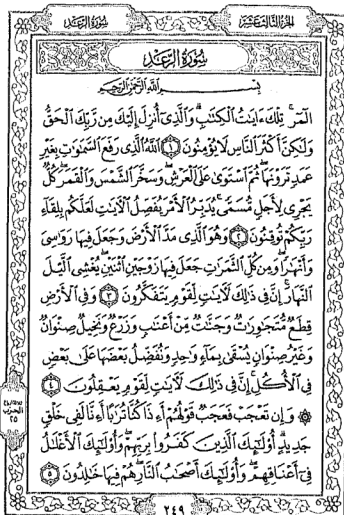 الجزء الثالث عشر
سورة الرعد
سُورَةُ الرَّعْدِ
بِسْمِ اللَّهِ الرَّحْمَنِ الرَّحِيمِ
الٓمٓر ۚ تِلْكَ ءَايَٰتُ الْكِتَٰبِ ۗ وَالَّذِىٓ أُنزِلَ إِلَيْكَ مِن رَّبِّكَ الْحَقُّ
وَلَٰكِنَّ أَكْثَرَ النَّاسِ لَا يُؤْمِنُونَ ١ اللَّهُ الَّذِى رَفَعَ السَّمَٰوَٰتِ بِغَيْرِ
عَمَدٍ تَرَوْنَهَا ۖ ثُمَّ اسْتَوَىٰ عَلَى الْعَرْشِ ۖ وَسَخَّرَ الشَّمْسَ وَالْقَمَرَ ۖ كُلٌّ
يَجْرِى لِأَجَلٍ مُّسَمًّى ۚ يُدَبِّرُ الْأَمْرَ يُفَصِّلُ الْءَايَٰتِ لَعَلَّكُم بِلِقَآءِ
رَبِّكُمْ تُوقِنُونَ ٢ وَهُوَ الَّذِى مَدَّ الْأَرْضَ وَجَعَلَ فِيهَا رَوَٰسِىَ
وَأَنْهَٰرًا ۖ وَمِن كُلِّ الثَّمَرَٰتِ جَعَلَ فِيهَا زَوْجَيْنِ اثْنَيْنِ ۖ يُغْشِى الَّيْلَ
النَّهَارَ ۚ إِنَّ فِى ذَٰلِكَ لَءَايَٰتٍ لِّقَوْمٍ يَتَفَكَّرُونَ ٣ وَفِى الْأَرْضِ
قِطَعٌ مُّتَجَٰوِرَٰتٌ وَجَنَّٰتٌ مِّنْ أَعْنَٰبٍ وَزَرْعٌ وَنَخِيلٌ صِنْوَانٌ
وَغَيْرُ صِنْوَانٍ يُسْقَىٰ بِمَآءٍ وَٰحِدٍ وَنُفَضِّلُ بَعْضَهَا عَلَىٰ بَعْضٍ
فِى الْأُكُلِ ۚ إِنَّ فِى ذَٰلِكَ لَءَايَٰتٍ لِّقَوْمٍ يَعْقِلُونَ ٤
۞ وَإِن تَعْجَبْ فَعَجَبٌ قَوْلُهُمْ أَءِذَا كُنَّا تُرَٰبًا أَءِنَّا لَفِى خَلْقٍ
جَدِيدٍ ۗ أُو۟لَٰٓئِكَ الَّذِينَ كَفَرُوا۟ بِرَبِّهِمْ ۖ وَأُو۟لَٰٓئِكَ الْأَغْلَٰلُ
فِىٓ أَعْنَاقِهِمْ ۖ وَأُو۟لَٰٓئِكَ أَصْحَٰبُ النَّارِ ۖ هُمْ فِيهَا خَٰلِدُونَ ٥
الحزب
٢٥
٢٤٩